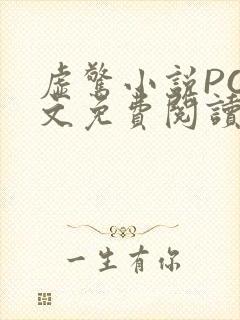 虚驚小説PO
文免費閱讀
一生有你